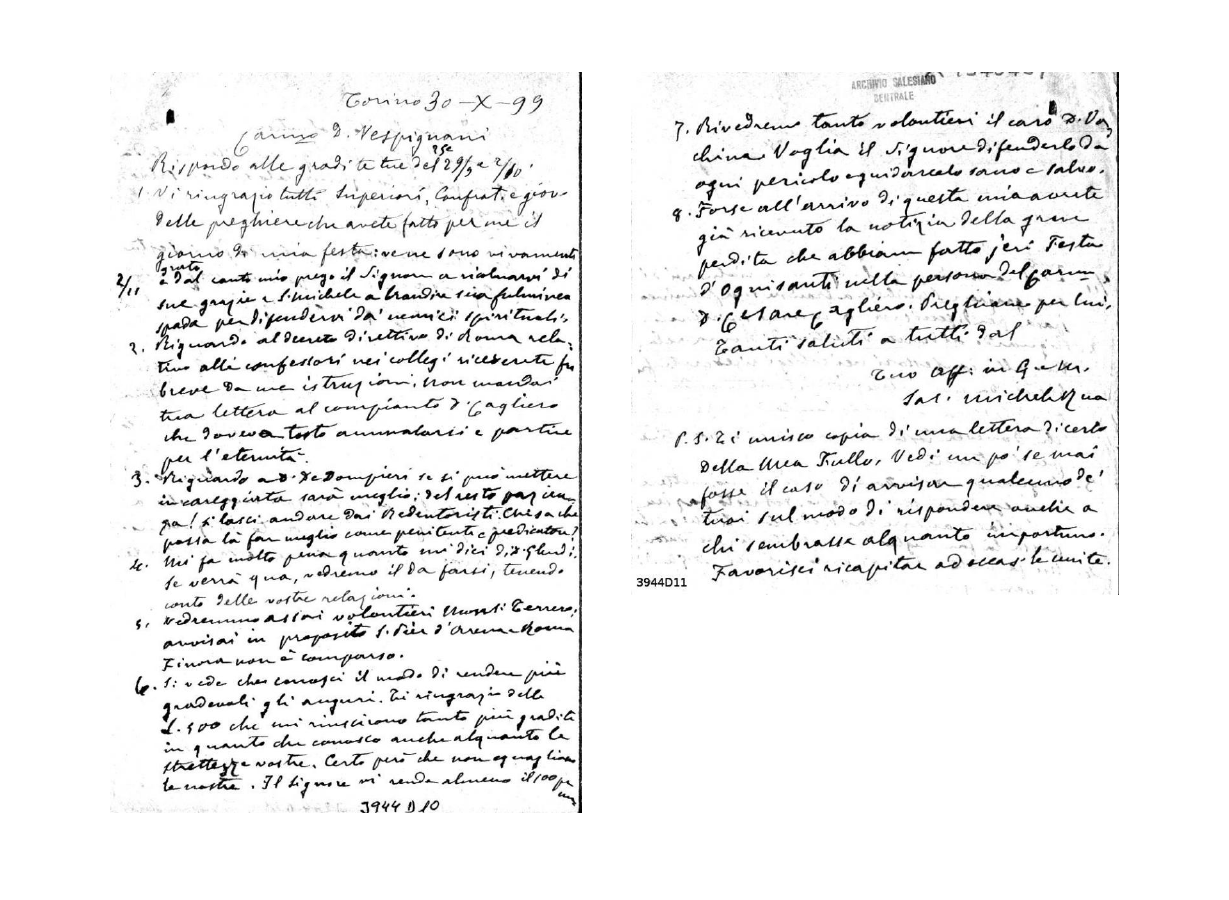 Torino 30-X-99
Carmo D. Vespignani
Rispondo alle gradite tue del 29/9 e 2/10.
25e
1. Vi ringrazio tutti Superiori, Confrat. e giov.
delle preghiere che avete fatto per me il
giorno di mia festa: ve ne sono vivamente
grato
2/11
e dal canto mio prego il Signore a ricolmarvi di
sue grazie e S. Michele a brandire sua fulminea
spada per difendervi da' nemici spirituali.
2. Riguardo al decreto direttivo di Roma rela-
tivo alli confessori nei collegi riceverete fra
breve da me istruzioni. Non mandai
tua lettera al compianto D. Cagliero
che doveva tosto ammalarsi e partire
per l'eternità.
3. Riguardo a D. De Dompieri se si può mettere
in careggiata sarà meglio; del resto pazien-
za! si lasci andare dai Redentoristi. Chi sa che
possa là far meglio come penitente e predicatore?
4. Mi fa molto pena quanto mi dici di D.
se verrà qua, vedremo il da farsi, tenendo
conto delle vostre relazioni.
5. Vedremmo assai volontieri Mons. Terrero,
avvisai in proposito S. Pier d'Arena e Roma
Finora non è comparso.
6. Si vede che conosci il modo di rendere più
gradevoli gli auguri. Ti ringrazio delle
L. 500 che mi riuscirono tanto più gradite
in quanto che conosco anche alquanto le
strettezze vostre. Certo però che non eguagliano
le nostre. Il Signore vi renda almeno il 100 per
uno
3944 D 10
ARCHIVIO SALESIANO
CENTRALE
7. Rivedremo tanto volontieri il caro D. Vac
china. Voglia il Signore difenderlo da
ogni pericolo e guidarcelo sano e salvo.
8. Forse all'arrivo di questa mia avrete
già ricevuto la notizia della grave
perdita che abbiam fatto jeri Festa
d'Ognisanti nella persona del Carmo
D. Cesare Cagliero. Preghiamo per lui.
Tanti saluti a tutti dal
Tuo Aff. in G. e M.
Sac. Michele Rua
P.S. Ti unisco copia di una lettera di certo
Della Mea Tullo. Vedi un po' se mai
fosse il caso di avvisar qualcuno de'
tuoi sul modo di rispondere anche a
chi sembrasse alquanto importuno.
Favorisci ricapitar ad occas. le unite.
3944D11